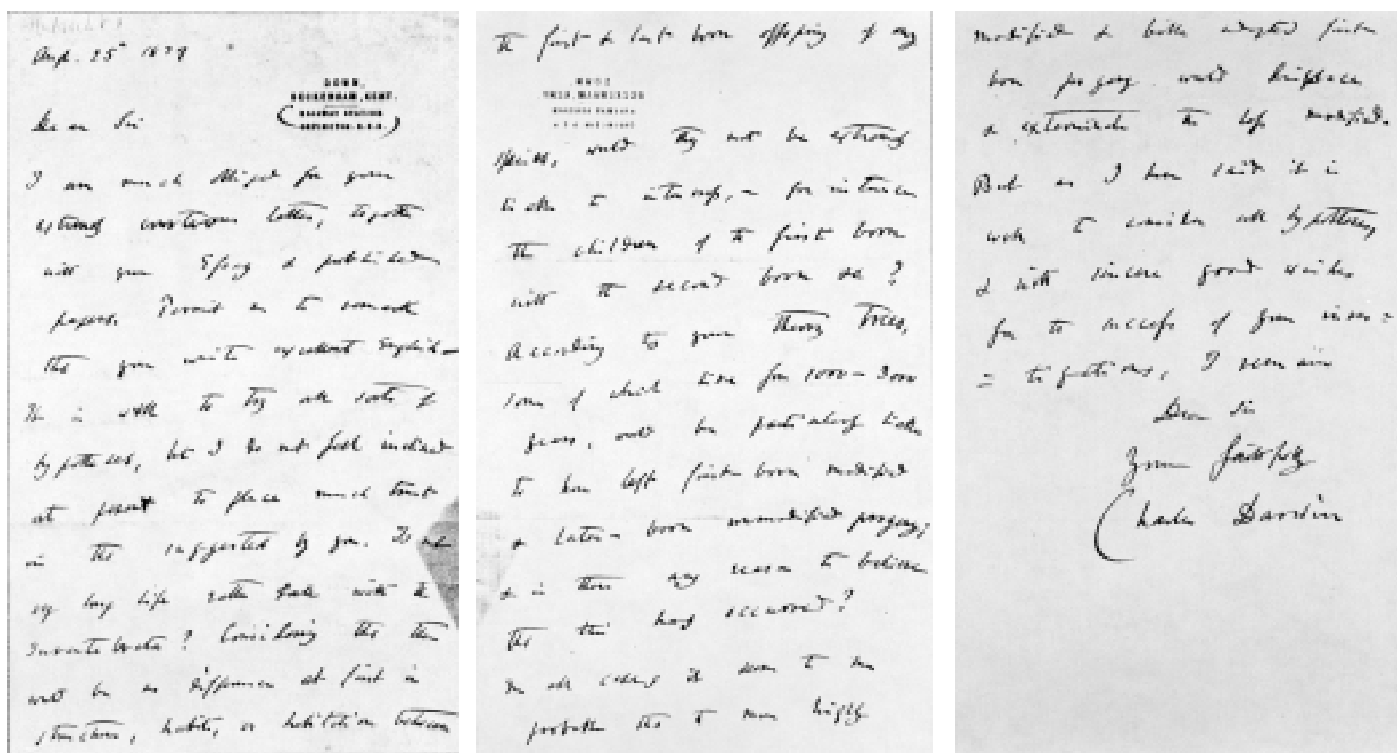 Sep. 25 1879
DOWN,
BECKENHAM, KENT.
RAILWAY STATION
ORPINGTON. S.E.R.
Dear Sir
I am much obliged for your
extremely courteous letter, together
with your Essay & published
papers. Permit me to remark
that you write excellent English.
It is well to try all sorts of
hypotheses, but I do not feel inclined
at present to place much trust
in that suggested by you. Do not
very long life rather fail with the
Invertebrata? Considering that there
would be no difference at first in
structure, habits, or habitation between
the first & last born offspring of any
species, would they not be extremely
liable to intercross,—for instance
the children of the first born
with the second born &c?
According to your theory Trees,
some of which live for 1000–3000
years, ought to be particularly liable
to have left first-born modified
& later-born unmodified progeny;
& is there any reason to believe
that this has occurred?
In all cases it seems to me
probable that the more highly
modified & better adapted first
born progeny would displace
& exterminate the less modified.
But as I have said it is
well to consider all hypotheses,
& with sincere good wishes
for the success of your inves=
=tigations, I remain
Dear Sir
Yours faithfully
Charles Darwin